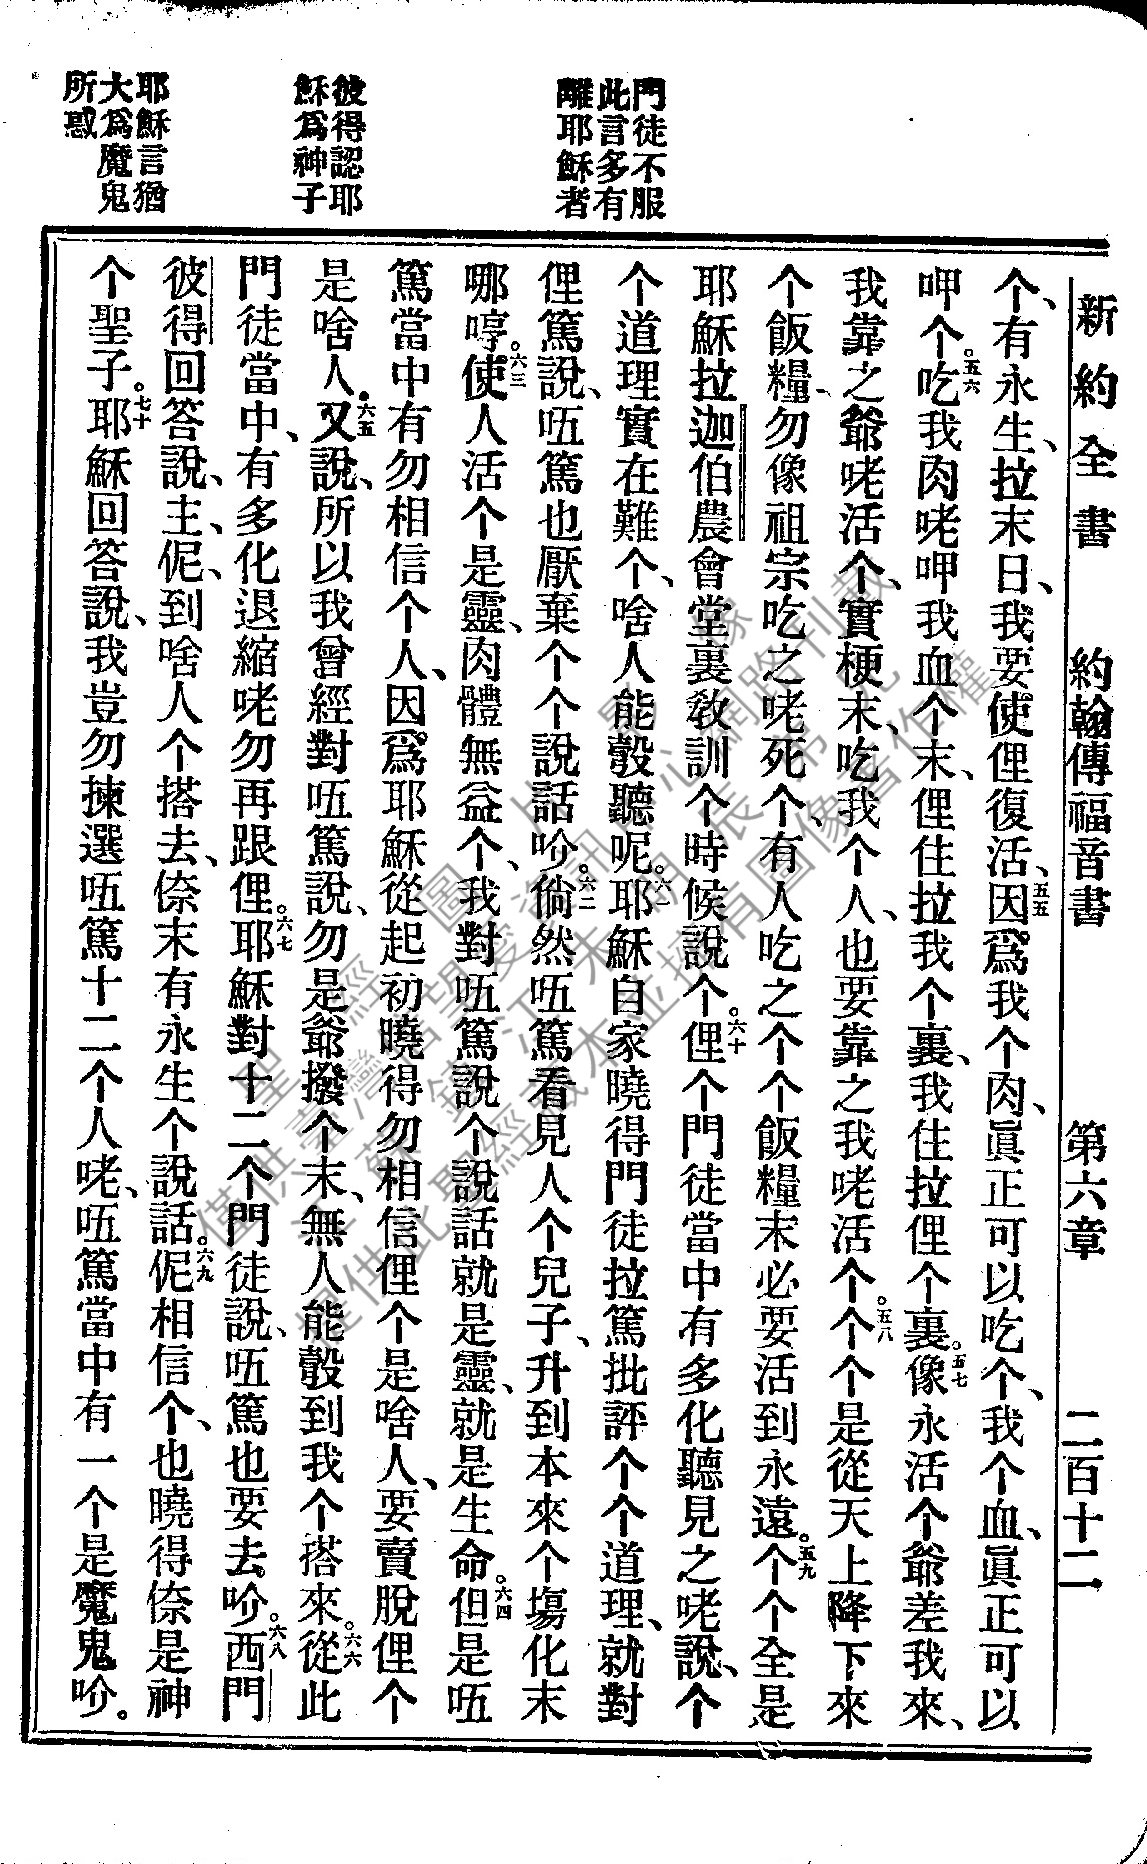 新約全書　約翰傳福音書　第六章　二百十二
門徒不服
此言多有
離耶穌者
彼得認耶
穌爲神子
耶穌言猶
大爲魔鬼
所惑
个、有永生、拉末日、我要使俚復活、五五因爲我个肉、眞正可以吃个、我个血、眞正可以
呷个。五六吃我肉咾呷我血个末、俚住拉我个裏、我住拉俚个裏。五七像永活个爺差我來、
我靠之爺咾活个、實梗末、吃我个人、也要靠之我咾活个。五八个个是從天上降下來
个飯糧、勿像祖宗吃之咾死个、有人吃之个个飯糧末必要活到永遠。五九个个全是
耶穌拉迦伯農會堂裏敎訓个時候說个。六十俚个門徒當中有多化聽見之咾說、个
个道理實在難个、啥人能彀聽呢。六一耶穌自家曉得門徒拉篤批評个个道理、就對
俚篤說、㕶篤也厭棄个个說話吤。六二倘然㕶篤看見人个兒子、升到本來个塲化末
哪哼。六三使人活个是靈、肉體無益个、我對㕶篤說个說話就是靈、就是生命。六四但是㕶
篤當中有勿相信个人、因爲耶穌從起初曉得勿相信俚个是啥人、要賣脫俚个
是啥人。六五又說、所以我曾經對㕶篤說、勿是爺撥个末、無人能彀到我个搭來。六六從此
門徒當中、有多化退縮咾勿再跟俚。六七耶穌對十二个門徒說、㕶篤也要去吤。六八西門
彼得回答說、主、伲、到啥人个搭去、倷末有永生个說話。六九伲相信个、也曉得倷是神
个聖子。七十耶穌回答說、我豈勿揀選㕶篤十二个人咾、㕶篤當中有一个是魔鬼吤。